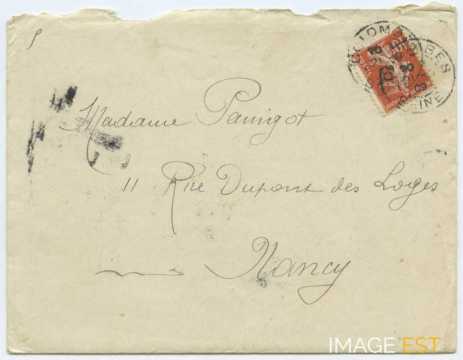 COLOMBES
SEINE
Madame Parrigot
11 Rue Dupont des Loges
Nancy
IMAGE EST